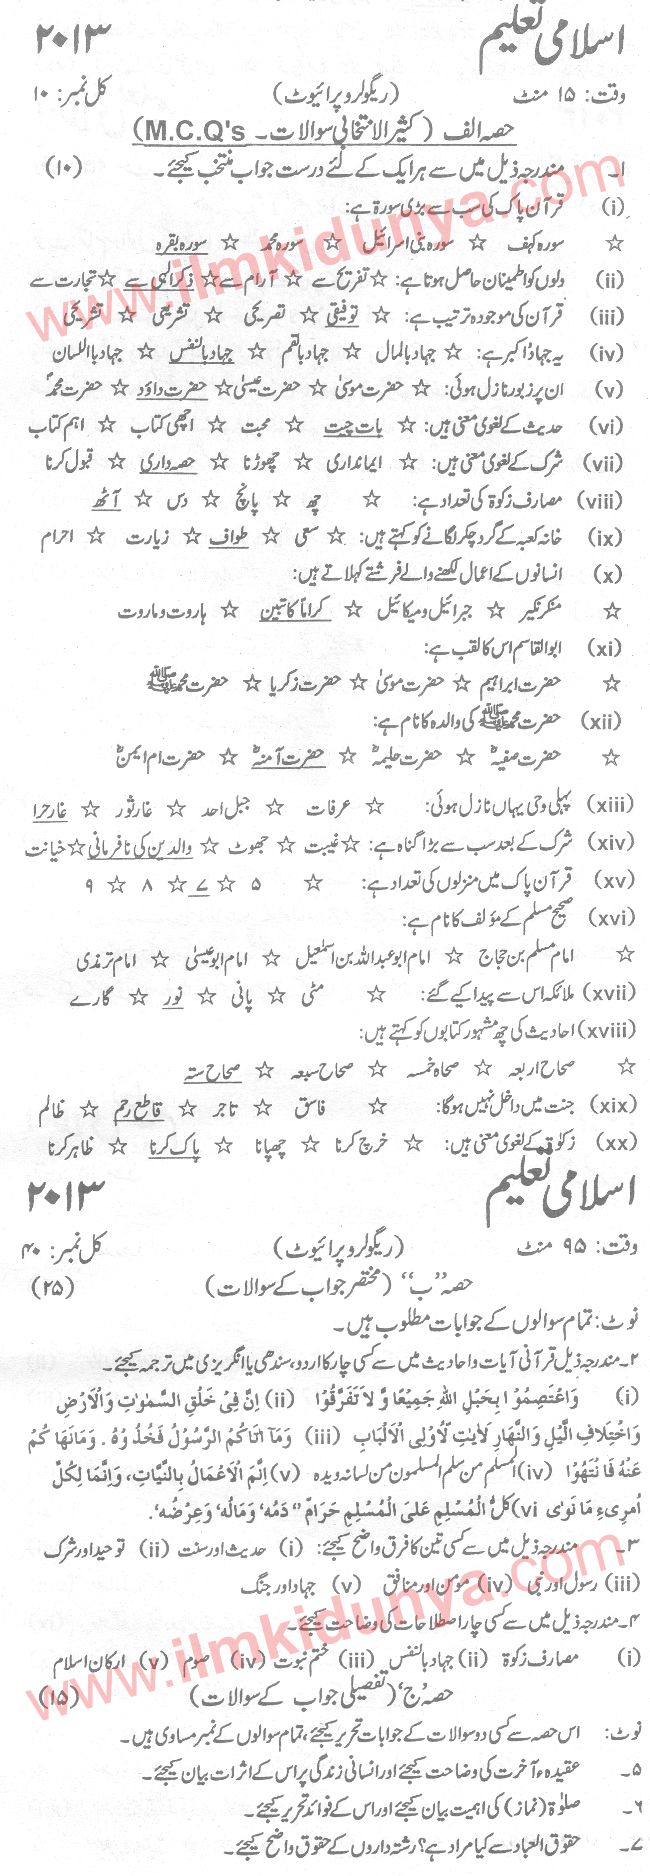 اسلامی تعلیم ۲۰۱۳
وقت: ۱۵ منٹ (ریگولر و پرائیوٹ) کل نمبر: ۱۰
حصہ الف (کثیر الانتخابی سوالات۔ M.C.Q's)
۱۔ مندرجہ ذیل میں سے ہر ایک کے لئے درست جواب منتخب کیجئے۔ (۱۰)
(i) قرآن پاک کی سب سے بڑی سورۃ ہے:
☆ سورہ کہف ☆ سورہ بنی اسرائیل ☆ سورہ محمد ☆ سورہ بقرہ
(ii) دلوں کو اطمینان حاصل ہوتا ہے: ☆ تفریح سے ☆ آرام سے ☆ ذکر الٰہی سے ☆ تجارت سے
(iii) قرآن کی موجودہ ترتیب ہے: ☆ توفیقی ☆ تصریحی ☆ تشریعی ☆ تشریحی
(iv) یہ جہاد اکبر ہے: ☆ جہاد بالمال ☆ جہاد بالقلم ☆ جہاد بالنفس ☆ جہاد باللسان
(v) ان پر زبور نازل ہوئی: ☆ حضرت موسیٰ ☆ حضرت عیسیٰ ☆ حضرت داؤد ☆ حضرت محمدؐ
(vi) حدیث کے لغوی معنی ہیں: ☆ بات چیت ☆ محبت ☆ اچھی کتاب ☆ اہم کتاب
(vii) شرک کے لغوی معنی ہیں: ☆ ایمانداری ☆ چھوڑنا ☆ حصہ داری ☆ قبول کرنا
(viii) مصارف زکوٰۃ کی تعداد ہے: ☆ چھ ☆ پانچ ☆ دس ☆ آٹھ
(ix) خانہ کعبہ کے گرد چکر لگانے کو کہتے ہیں: ☆ سعی ☆ طواف ☆ زیارت ☆ احرام
(x) انسانوں کے اعمال لکھنے والے فرشتے کہلاتے ہیں:
☆ منکر نکیر ☆ جبرائیل و میکائیل ☆ کراماً کاتبین ☆ ہاروت و ماروت
(xi) ابوالقاسم اس کا لقب ہے:
☆ حضرت ابراہیم ☆ حضرت موسیٰ ☆ حضرت زکریا ☆ حضرت محمد ﷺ
(xii) حضرت محمد ﷺ کی والدہ کا نام ہے:
☆ حضرت صفیہؓ ☆ حضرت حلیمہؓ ☆ حضرت آمنہؓ ☆ حضرت ام ایمنؓ
(xiii) پہلی وحی یہاں نازل ہوئی: ☆ عرفات ☆ جبل احد ☆ غار ثور ☆ غار حرا
(xiv) شرک کے بعد سب سے بڑا گناہ ہے: ☆ غیبت ☆ جھوٹ ☆ والدین کی نافرمانی ☆ خیانت
(xv) قرآن پاک میں منزلوں کی تعداد ہے: ☆ ۵ ☆ ۷ ☆ ۸ ☆ ۹
(xvi) صحیح مسلم کے مؤلف کا نام ہے:
☆ امام مسلم بن حجاج ☆ امام ابو عبداللہ بن اسمٰعیل ☆ امام ابو عیسیٰ ☆ امام ترمذی
(xvii) ملائکہ اس سے پیدا کیے گئے: ☆ مٹی ☆ پانی ☆ نور ☆ گارے
(xviii) احادیث کی چھ مشہور کتابوں کو کہتے ہیں:
☆ صحاح اربعہ ☆ صحاہ خمسہ ☆ صحاح سبعہ ☆ صحاح ستہ
(xix) جنت میں داخل نہیں ہوگا: ☆ فاسق ☆ تاجر ☆ قاطع رحم ☆ ظالم
(xx) زکوٰۃ کے لغوی معنی ہیں: ☆ خرچ کرنا ☆ چھپانا ☆ پاک کرنا ☆ ظاہر کرنا
اسلامی تعلیم ۲۰۱۳
وقت: ۹۵ منٹ (ریگولر و پرائیوٹ) کل نمبر: ۴۰
حصہ "ب" (مختصر جواب کے سوالات) (۲۵)
نوٹ: تمام سوالوں کے جوابات مطلوب ہیں۔
۲۔ مندرجہ ذیل قرآنی آیات و احادیث میں سے کسی چار کا اردو، سندھی یا انگریزی میں ترجمہ کیجئے۔
(i) وَاعْتَصِمُوْا بِحَبْلِ اللهِ جَمِيْعًا وَّ لَا تَفَرَّقُوْا (ii) اِنَّ فِىْ خَلْقِ السَّمٰوٰتِ وَالْاَرْضِ
وَاخْتِلَافِ الَّيْلِ وَالنَّهَارِ لَاٰيٰتٍ لِّاُولِى الْاَلْبَابِ (iii) وَمَآ اٰتَاكُمُ الرَّسُوْلُ فَخُذُوْهُ ۔ وَمَانَهَا كُمْ
عَنْهُ فَانْتَهُوْا (iv) المسلم من سلم المسلمون من لسانہ ویدہ (v) اِنَّمَ الْاَعْمَالُ بِالنِّيَّاتِ، وَاِنَّمَا لِكُلِّ
اُمْرِیءٍ مَا نَوٰى vi) كُلُّ الْمُسْلِمِ عَلَى الْمُسْلِمِ حَرَامٌ " دَمُهٗ وَمَالُهٗ وَعِرْضُهٗ.
۳۔ مندرجہ ذیل میں سے کسی تین کا فرق واضح کیجئے: (i) حدیث اور سنت (ii) توحید اور شرک
(iii) رسول اور نبی (iv) مؤمن اور منافق (v) جہاد اور جنگ
۴۔ مندرجہ ذیل میں سے کسی چار اصطلاحات کی وضاحت کیجئے۔
(i) مصارف زکوٰۃ (ii) جہاد بالنفس (iii) ختم نبوت (iv) صوم (v) ارکان اسلام
حصہ 'ج' (تفصیلی جواب کے سوالات) (۱۵)
نوٹ: اس حصہ سے کسی دو سوالات کے جوابات تحریر کیجئے، تمام سوالوں کے نمبر مساوی ہیں۔
۵۔ عقیدہء آخرت کی وضاحت کیجئے اور انسانی زندگی پر اس کے اثرات بیان کیجئے۔
۶۔ صلوٰۃ (نماز) کی اہمیت بیان کیجئے اور اس کے فوائد تحریر کیجئے۔
۷۔ حقوق العباد سے کیا مراد ہے؟ رشتہ داروں کے حقوق واضح کیجئے۔
www.ilmkidunya.com
www.ilmkidunya.com